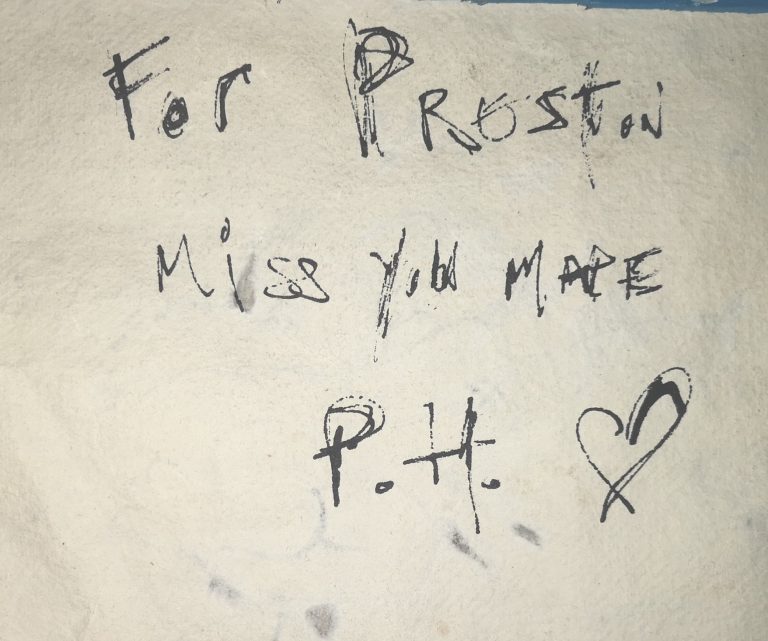 For PRESTON
MiSS YOU MATE
P.H. ♡